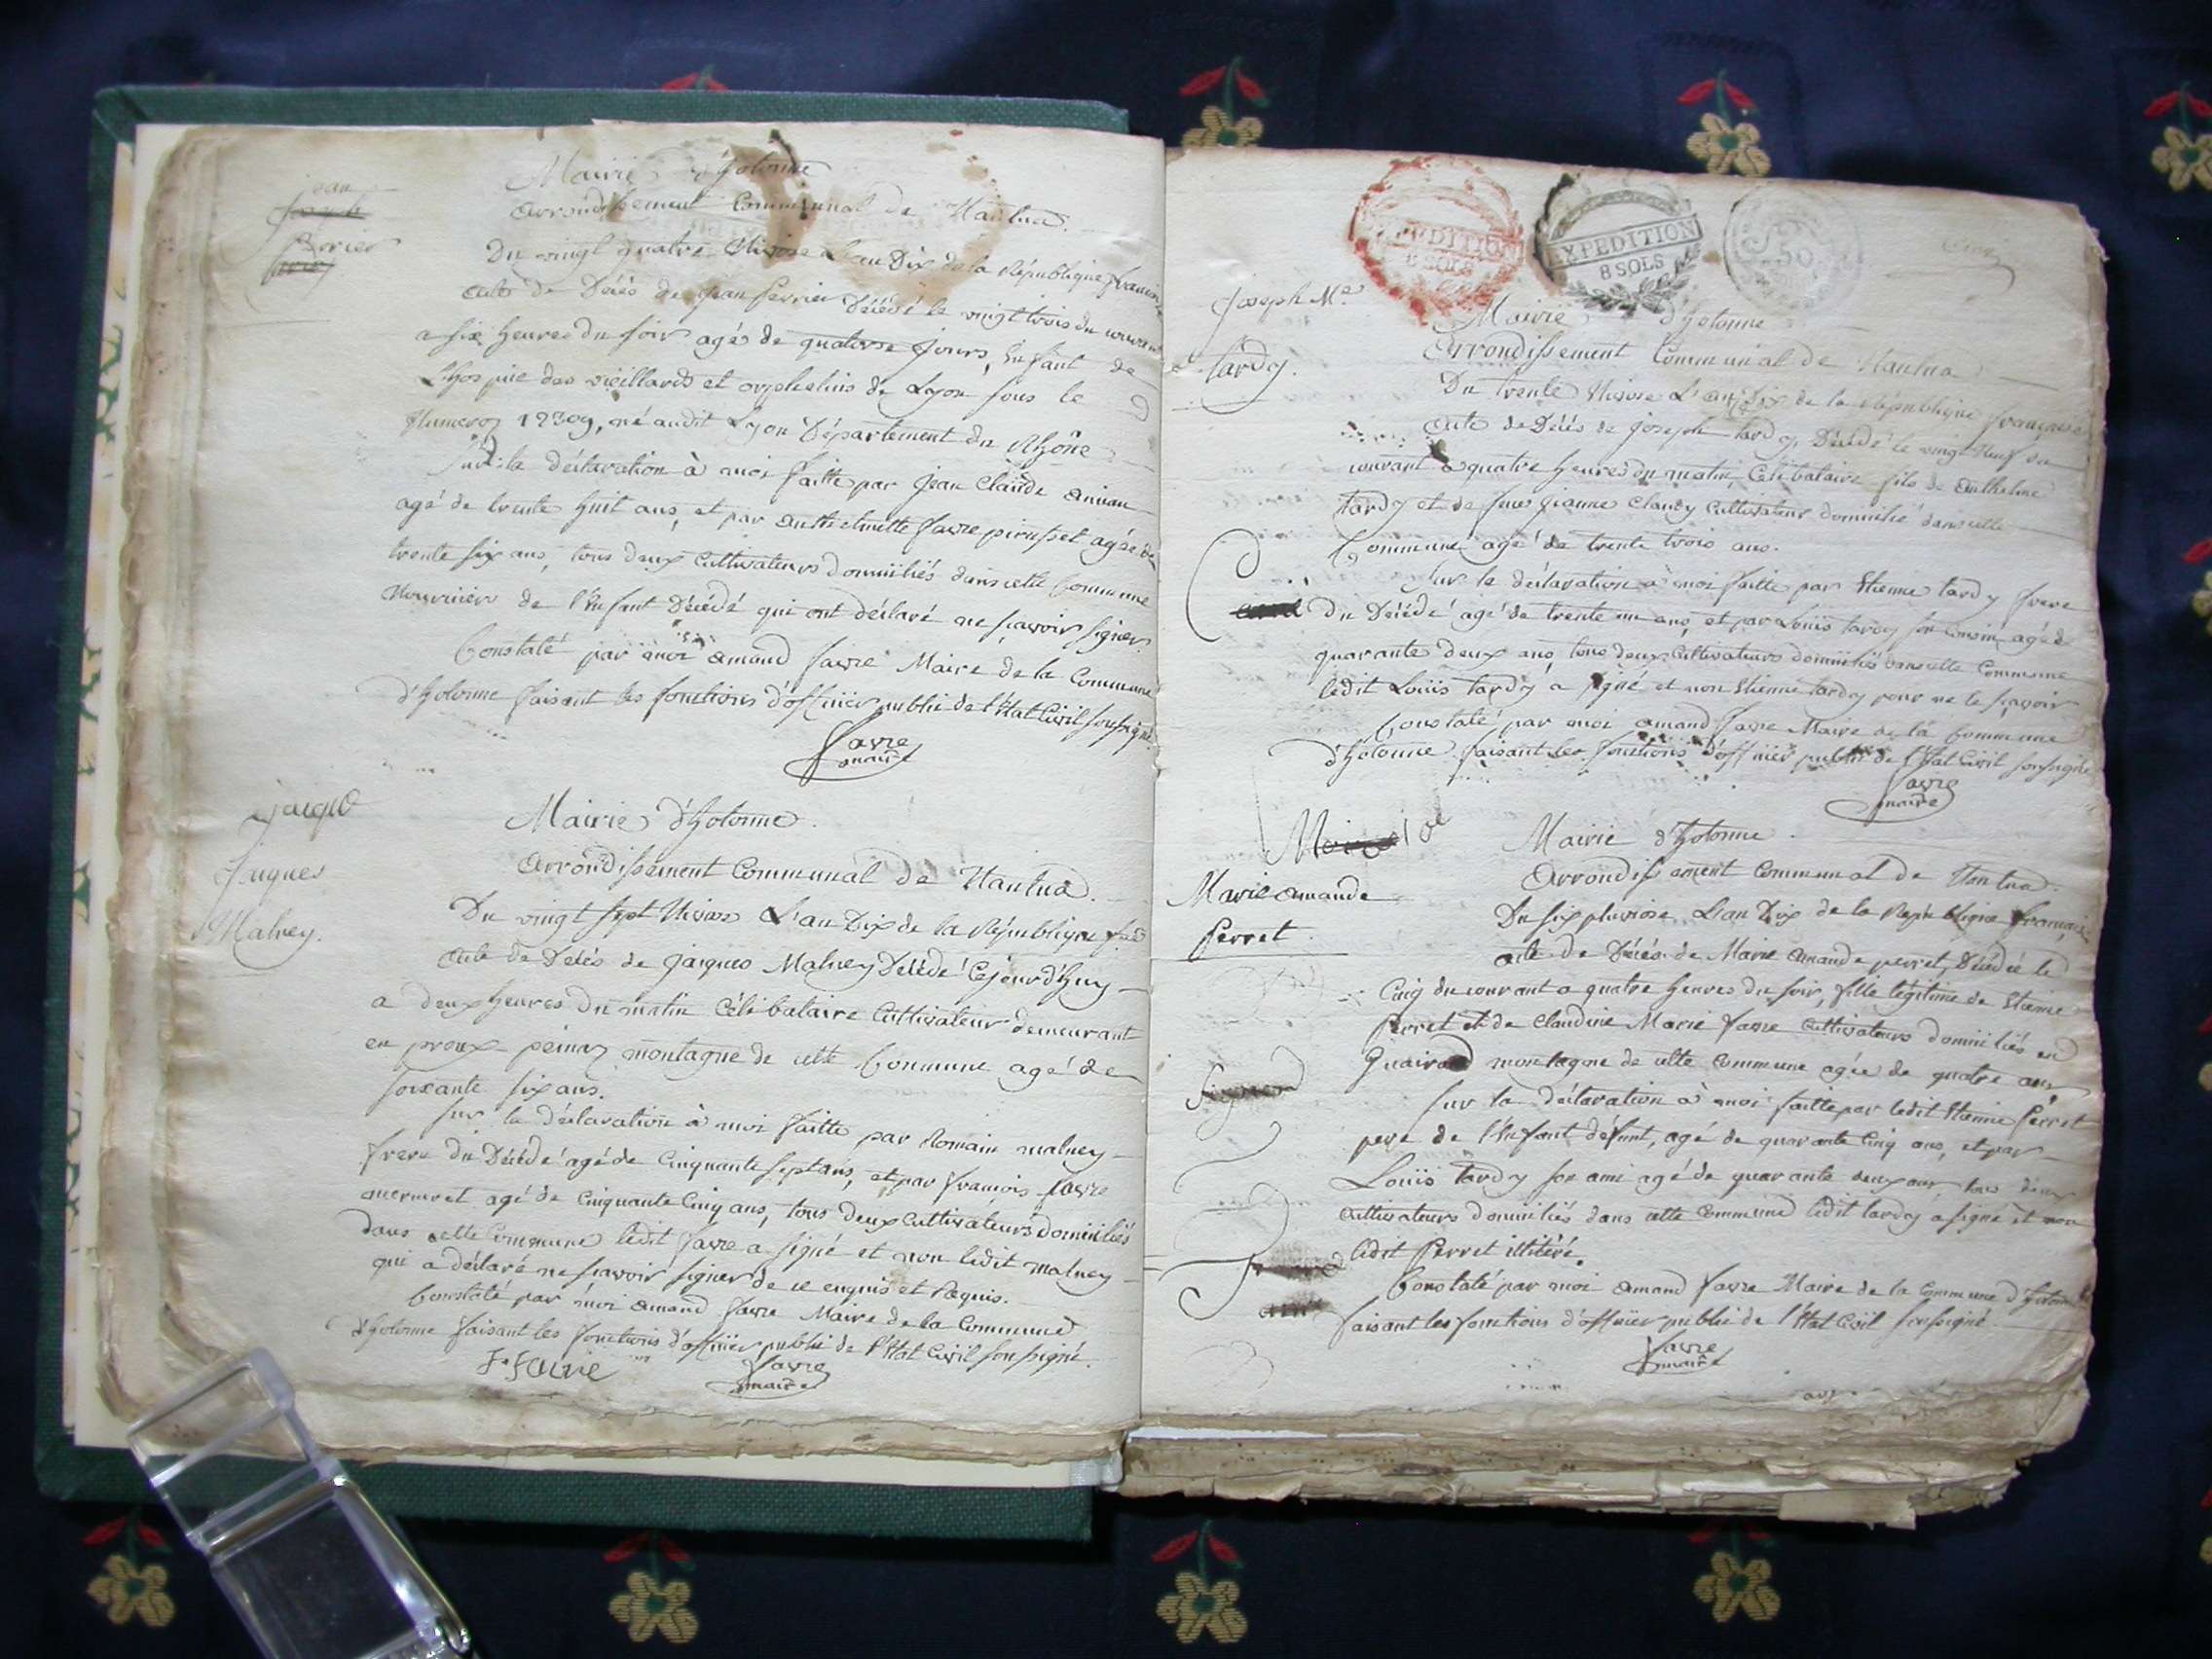 jean
Joseph
ferrier
Mairie d'hotonne
arrondissement Communal de Nantua.
Du vingt quatre Nivose L'an Dix de la République francoi
acte de Décés de jean ferrier Décédé le vingt trois du courant
a six heures du soir agés de quatorse jours, Enfant de
L'hospice des vieillards et orphelins de Lyon sous le
Numeros 12309, né audit Lyon Département du Rhône
Sur la déclaration à moi faitte par jean Claude
agé de trente huit ans, et par anthelmette favre pirusset agée de
trente six ans, tous deux Cultivateurs domiciliés dans cette Commune
Nourricier de l'Enfant Décédé qui ont déclaré ne scavoir signer.
Constaté par moi amand favre Maire de la Commune
d'hotonne faisant les fonctions d'officier public de l'Etat Civil soussigné.
favre
maire
jaique
jaques
Malney.
Mairie d'hotonne.
arrondissement Communal de Nantua.
Du vingt sept Nivose L'an Dix de la République
acte de Décés de jaiques Malney Décédé Cejourd'huy
a deux heures du matin Célibataire Cultivateur demeurant
en montagne de cette Commune agé de
soixante six ans.
sur la déclaration à moi faitte par Romain malney
frere du Décédé agé de Cinquante sept ans, et par francois favre
agé de Cinquante Cinq ans, tous deux Cultivateurs domiciliés
dans cette Commune ledit favre a signé et non ledit malney
qui a déclaré ne scavoir signer de ce enquis et Requis.
Constaté par moi amand favre Maire de la Commune
d'hotonne faisant les fonctions d'officier public de l'Etat Civil soussigné.
F favre
favre
maire
EXPEDITION
8 SOLS
EXPEDITION
8 SOLS
50
Joseph Me
tardy.
Mairie d'hotonne
arrondissement Communal de Nantua
Du trente Nivose L'an dix de la République française
acte de Décés de joseph tardy, Décédé le vingt neuf du
courant a quatre heures du matin, Célibataire fils de anthelme
tardy et de feue jeanne Claudy Cultivateur domicilié dans cette
Commune agé de trente trois ans.
Sur la déclaration à moi faitte par Etienne tardy frere
du Décédé agé de trente un ans, et par Louis tardy son cousin agé de
quarante deux ans tous deux Cultivateurs domiciliés dans cette Commune
ledit Louis tardy a signé et non Etienne tardy pour ne le scavoir
Constaté par moi amand favre Maire de la Commune
d'hotonne faisant les fonctions d'officier public de l'Etat Civil soussigné
favre
maire
Marie amande
Perret.
Mairie d'hotonne.
arrondissement Communal de Nantua.
Du six pluviose L'an Dix de la République francais
acte de Décés de Marie amande perret, Décédée le
Cinq du courant a quatre heures du soir, fille légitime de Etienne
Perret et de Claudine Marie favre Cultivateurs domiciliés en
montagne de cette Commune agée de quatre ans
sur la déclaration à moi faitte par ledit Etienne Perret
pere de l'Enfant défunt, agé de quarante Cinq ans, et par
Louis tardy son ami agé de quarante deux ans, tous deux
Cultivateurs domiciliés dans cette Commune ledit tardy a signé et non
ledit Perret illitéré.
Constaté par moi amand favre Maire de la Commune d'hotonne
faisant les fonctions d'officier public de l'Etat Civil soussigné.
favre
maire